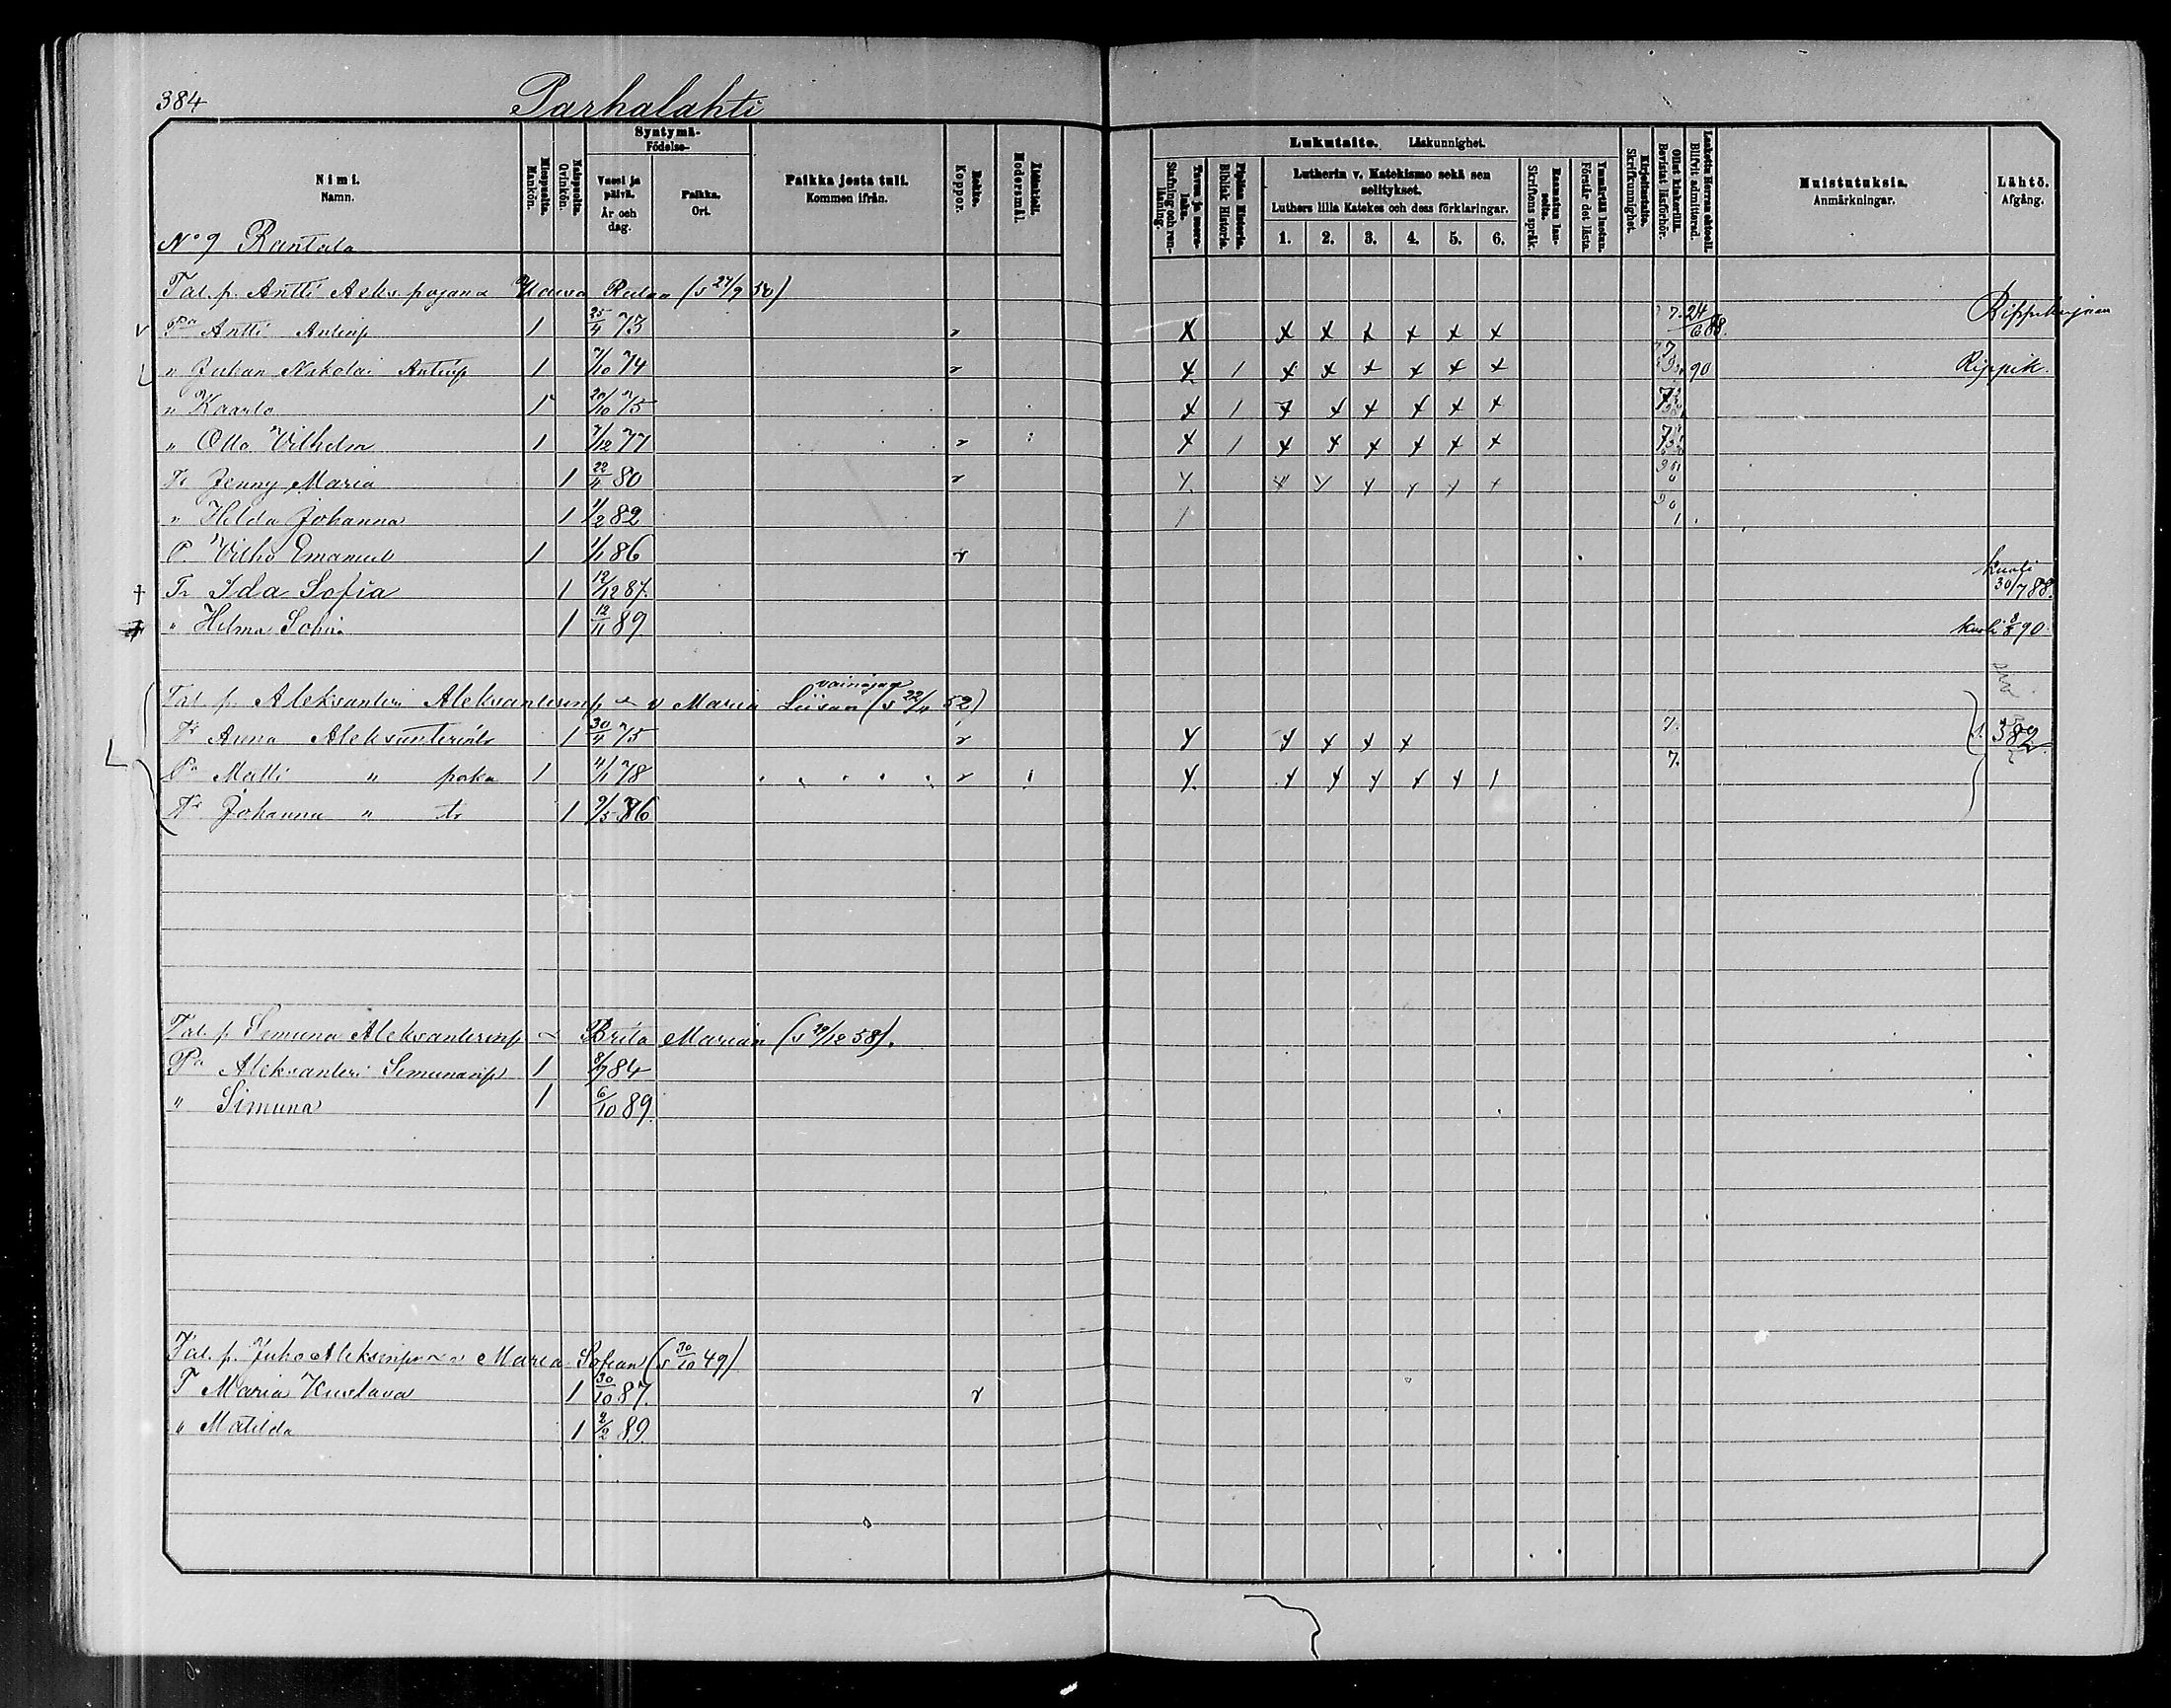 384
Parhalahti
Nimi.
Namn.
Miespuolia.
Mankön.
Naispuolia.
Qvinkön.
Syntymä-
Födelse-
Vuosi ja päivä.
År och dag.
Paikka.
Ort.
Paikka josta tuli.
Kommen ifrån.
Rokko.
Koppor.
Äidinkieli.
Modersmål.
Lukutaito. Läskunnighet.
Tavaa ja suora-luku.
Stafning och ren-läsning.
Piplian Historia.
Biblisk Historia.
Lutherin v. Katekismo sekä sen selitykset.
Luthers lilla Katekes och dess förklaringar.
1. 2. 3. 4. 5. 6.
Raamatun lau-seita.
Skriftens språk.
Ymmärtää luetun.
Förstår det lästa.
Kirjoitustaito.
Skrifkunnighet.
Ollut kinkerillä.
Bevistat läsförhör.
Laskettu Herran ehtoolle.
Blifvit admitterad.
Muistutuksia.
Anmärkningar.
Lähtö.
Afgång.
No 9 Rantala
Tal. p. Antti Aleks. pojan (s 27/9 50)
v Pa Antti Antinp 1 25/4 73 x x x x x x x 7. 24/6 88. Rippikirjaan
" Juhan Nikolai Antinp 1 7/10 74 x 1 x x x x x x 90 Rippik.
" Kaarlo 1 20/10 75 x 1 x x x x x x
" Otto Vilhelm 1 7/12 77 x 1 x x x x x x
Tr Jenny Maria 1 22/11 80 x x x x x x x
" Hilda Johanna 1 1/2 82 /
P. Vilho Emanuel 1 1/1 86
† Tr Ida Sofia 1 12/12 87. kuoli 30/7 88.
† " Hilma Sofia 1 12/11 89 kuoli 90.
Tal. p. Aleksanteri Aleksanterinp v Maria Liisan (s 22/11 52)
Tr Anna Aleksanterintr 1 30/4 75 x x x x x 7. s. 382.
Pa Matti " poika 1 4/1 78 x x x x x x 1 7.
Tr Johanna " tr 1 9/5 86
Tal. p. Simuna Aleksanterinp Brita Marian (s 29/12 58).
Pa Aleksanteri Simunanp 1 8/7 84
" Simuna 1 6/10 89.
Tal. p. Juho Aleksinp v Maria Sofian (s 30/10 49)
T Maria Kustava 1 30/10 87.
" Matilda 1 2/2 89.